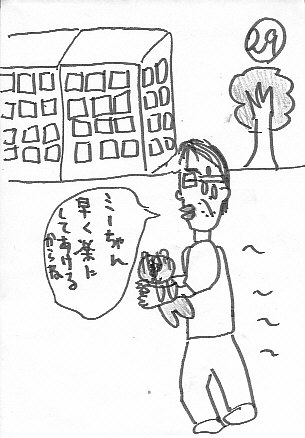 29
ミーちゃん
早く楽に
してあげる
からね